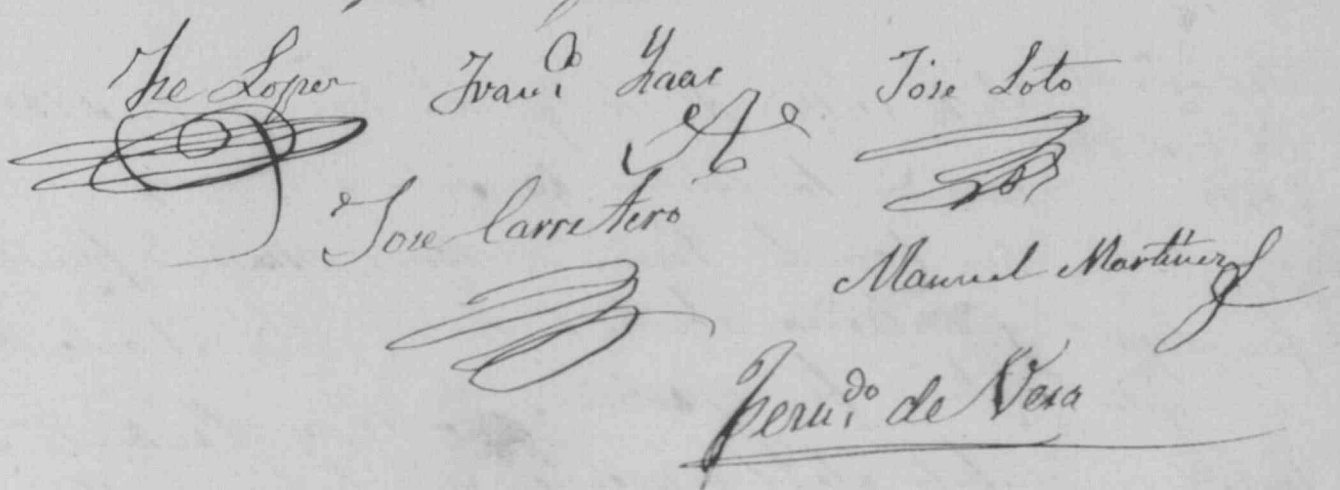 Jse Lopez Franco Ysaac José Soto
Jose Carretero
Manuel Martinez
Ferndo de Vera